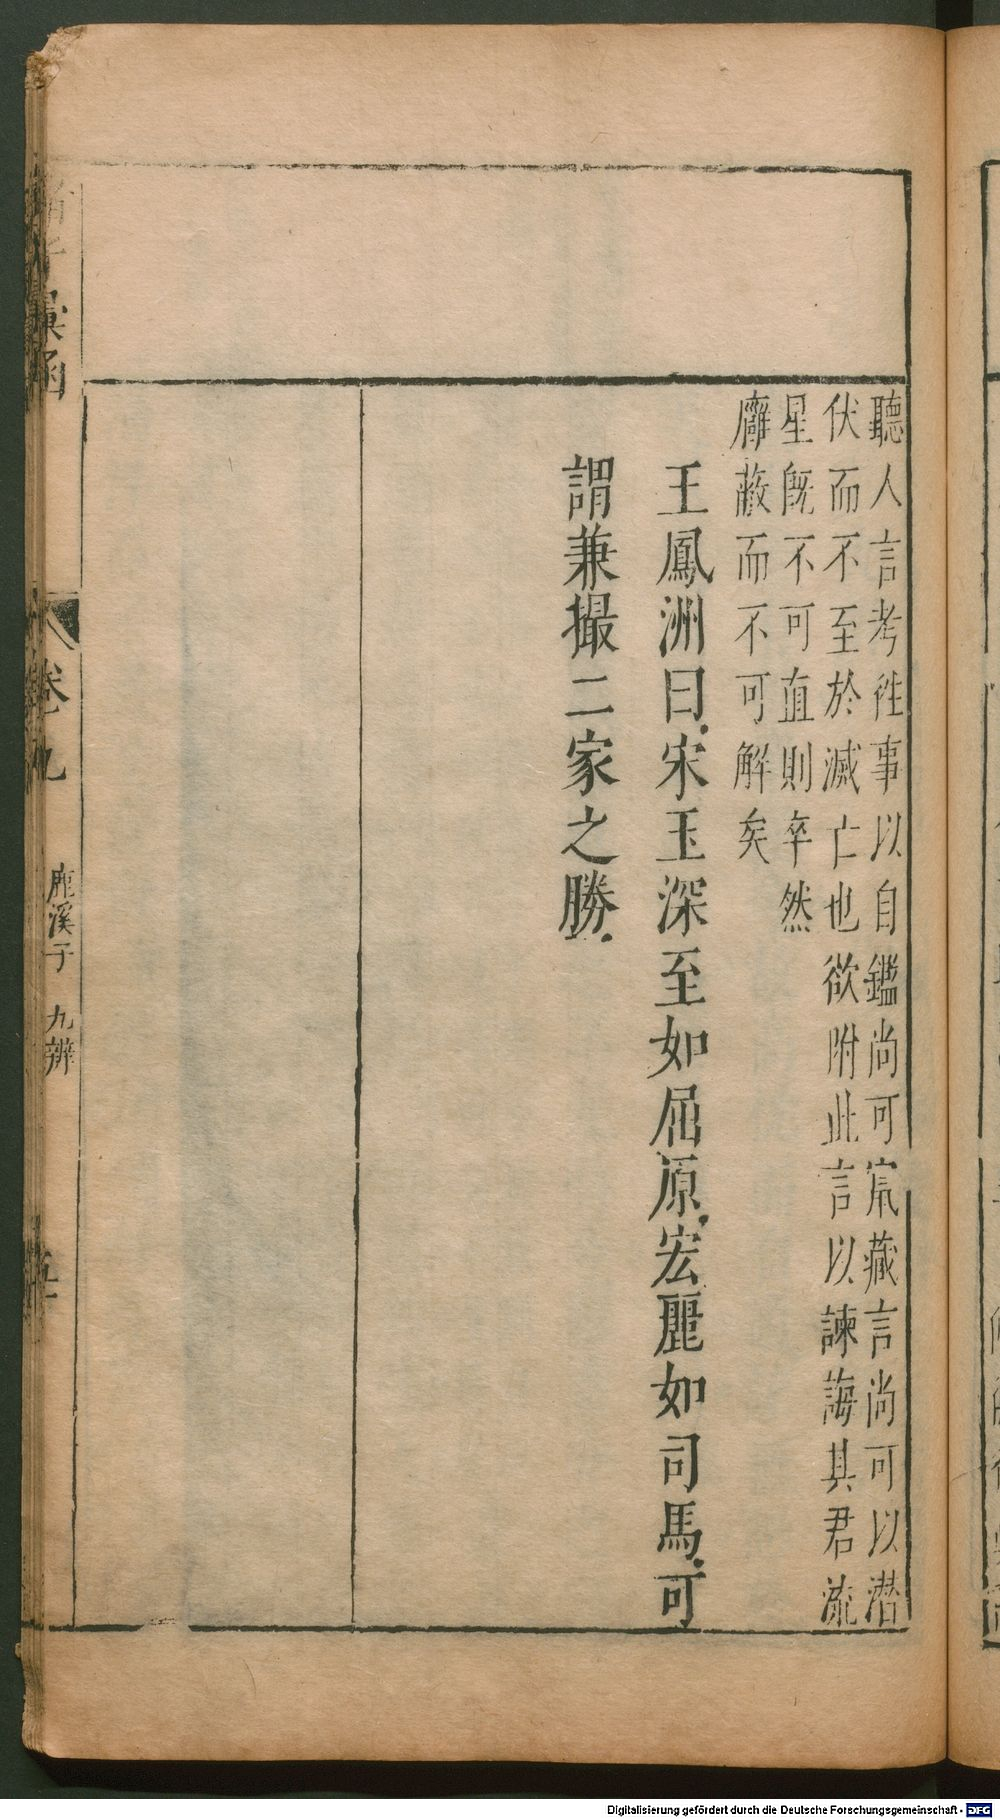 聽人言考徃事以自鑑尚可㝠藏言尚可以潜
伏而不至於滅亡也欲附此言以諫誨其君流
星既不可直則卒然
廱蔽而不可解矣
王鳳洲曰宋玉深至如屈原宏麗如司馬可
謂兼撮二家之勝
彙函
卷九
鹿溪子 九辨
Digitalisierung gefördert durch die Deutsche Forschungsgemeinschaft - DFG